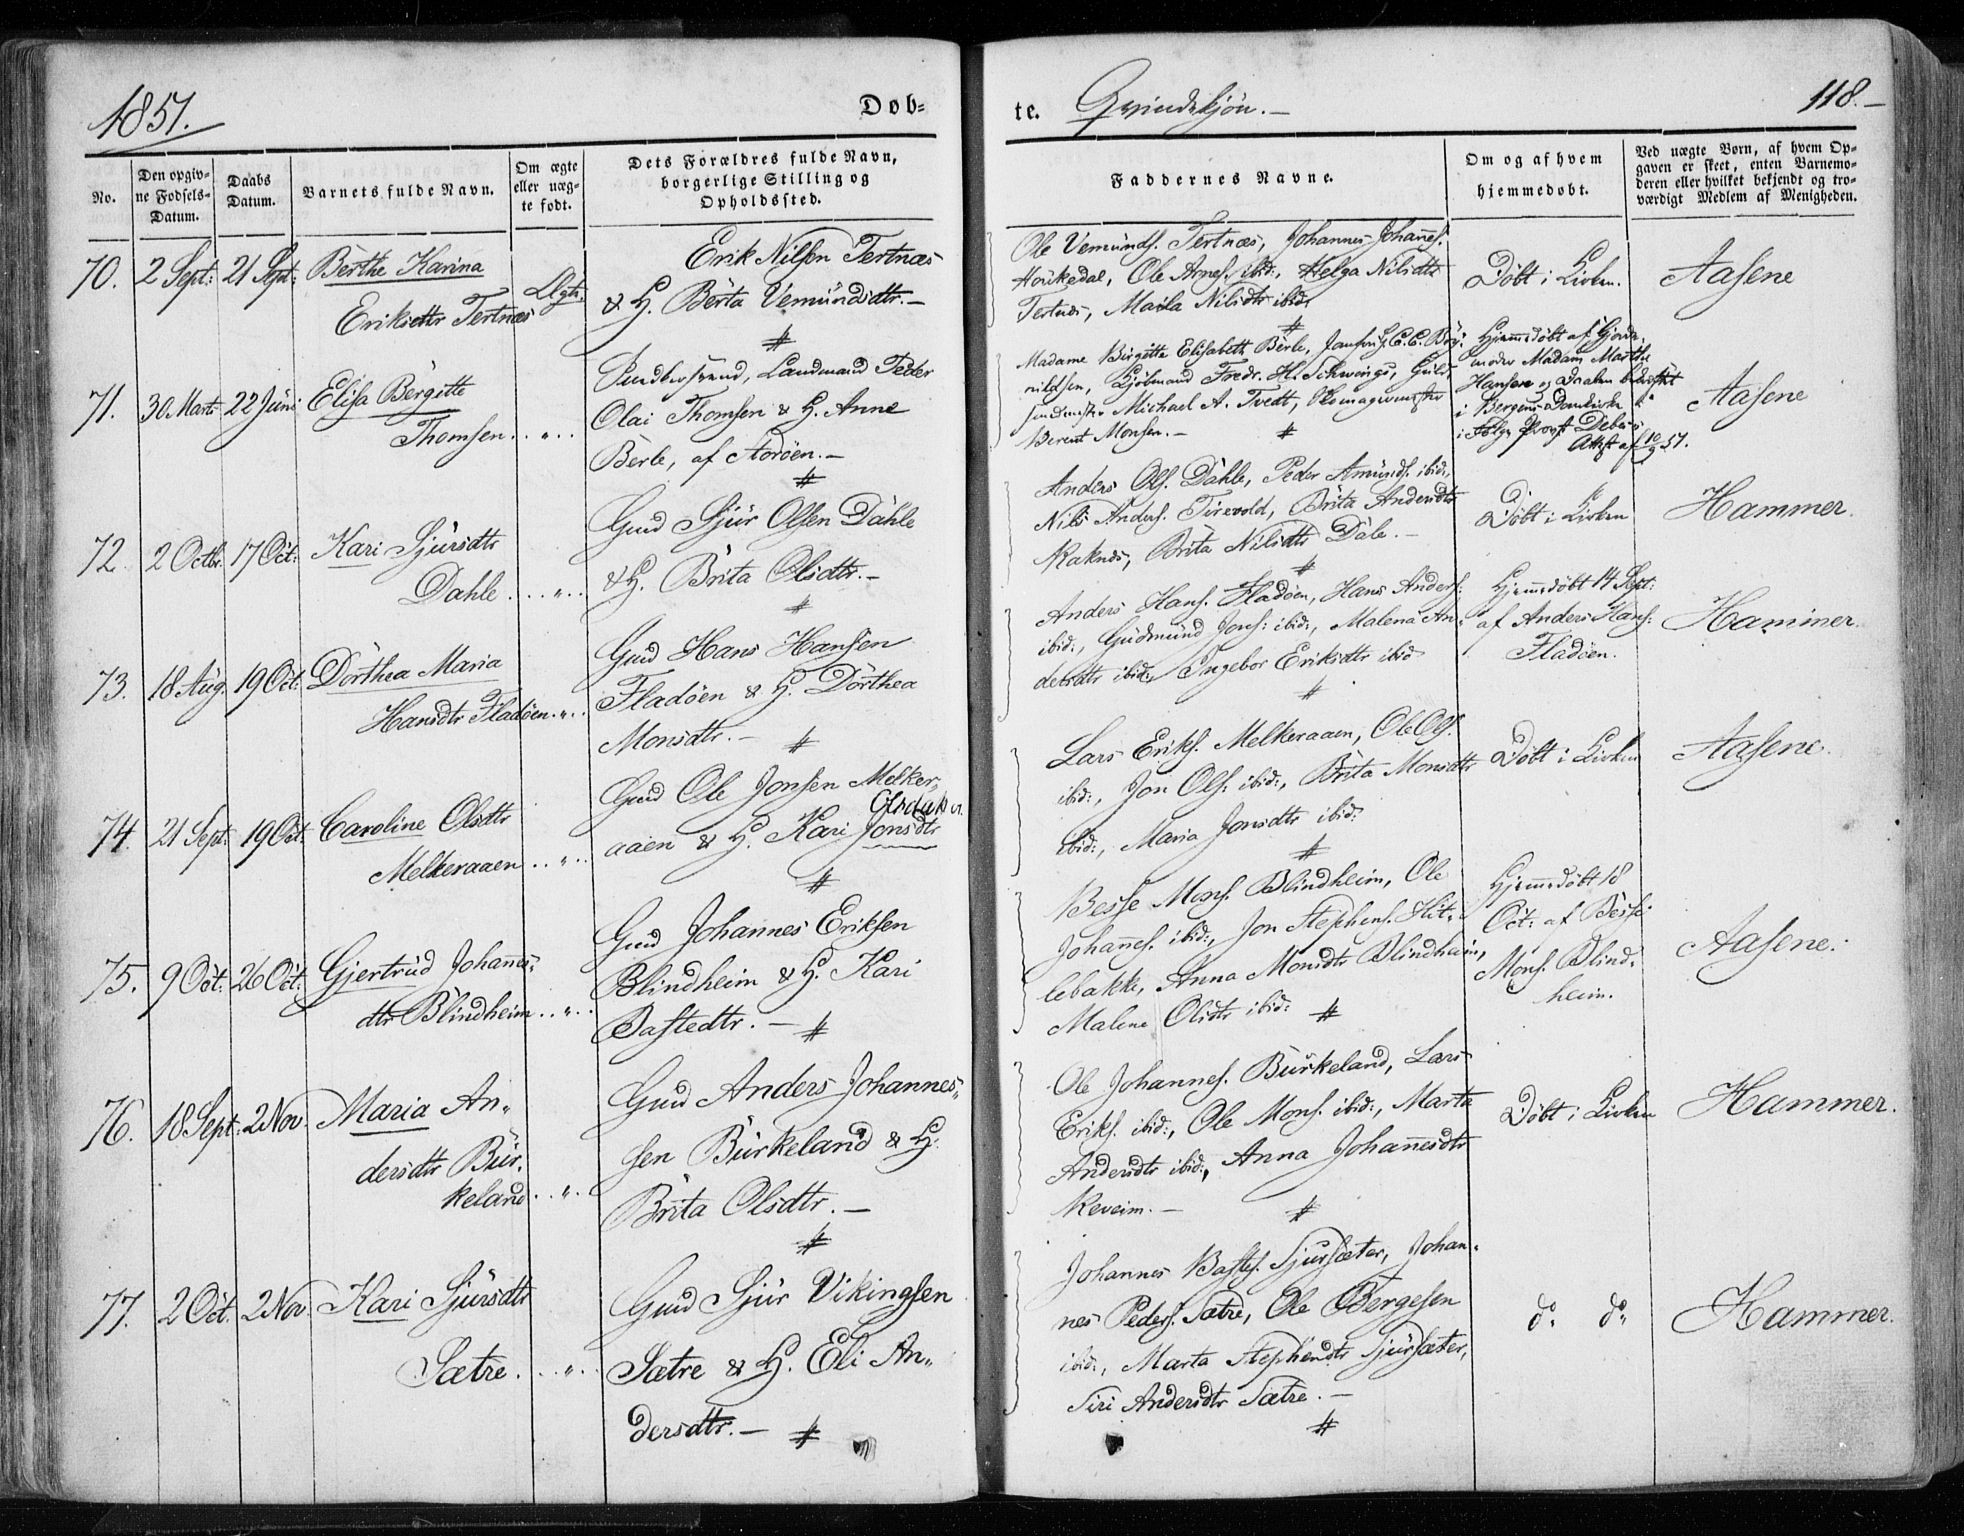 1851.
Døb-
te. Qvindekjøn.-
118.-
No.
Den opgiv-
ne Fødsels-
Datum.
Daabs
Datum.
Barnets fulde Navn.
Om ægte
eller uæg-
te født.
Dets Forældres fulde Navn,
borgerlige Stilling og
Opholdssted.
Faddernes Navne.
Om og af hvem
hjemmedøbt.
Ved uægte Børn, af hvem Op-
gaven er skeet, enten Barnemo-
deren eller hvilket bekjendt og tro-
værdigt Medlem af Menigheden.
70. 2 Sept: 21 Sept: Berthe Karina
Eriksdtr Tertnæs
Ægte
Erik Nilsen Tertnæs
& H. Berta Vemundsdtr.-
Ole Vemunds. Tertnæs, Johannes Johaněs.
Houkedal, Ole Arnes. ibid:, Helga Nilsdtr
Tertnæs, Maila Nilsdtr ibid:
Døbt i Kirken.
Aasene
71. 30 Mart: 22 Juni Elisa Bergitte
Thomsen . . „ . .
Landmand Peder
Olai Thomsen & H. Anne
Berle, af Aadöen.-
Madame Birgitte Elisabeth Berle, Jomfru C. C.
Kjøbmand Fredr. H. Schwings, Guld-
Michael A. Tvedt,
Berent Monsen.-
Hjemmedøbt af Gjorde-
moder Madam Marthe
Hansen og Daaben bekræftet
i Bergens Domkirke
i Følge Provst
Attest af 10/9 51.
Aasene
72. 2 Octbr. 17 Oct: Kari Sjursdtr
Dahle . . „ . .
Gmd Sjur Olsen Dahle
& H. Brita Olsdtr.-
Anders Ols. Dahle, Peder Amunds. ibid:,
Nils Anders. Tirevold, Brita Andersdtr
Raknes, Brita Nilsdtr Dale.-
Døbt i Kirken
Hammer.
73. 18 Aug. 19 Oct: Dorthea Maria
Hansdtr Fladöen . „ . .
Gmd Hans Hansen
Fladöen & H. Dorthea
Monsdtr.-
Anders Hans. Fladöen, Hans Anders.
ibid:, Gudmund Jons: ibid:, Malena An-
dersdtr ibid:, Ingebor Eriksdtr ibid
Hjemmedøbt 14 Sept:
af Anders Hans:
Fladöen.
Hammer.
74. 21 Sept: 19 Oct: Caroline Olsdtr
Melkeraaen . . „ . .
Gmd Ole Jonsen Melker-
aaen & H. Kari Jonsdtr
Lars Eriks. Melkeraaen, Ole Ols.
ibid:, Jon Ols. ibid:, Brita Monsdtr
ibid:, Maria Jonsdtr ibid:
Døbt i Kirken
Aasene.
75. 9 Oct: 26 Oct: Gjertrud Johannes-
dtr Blindheim . . „ . .
Gmd Johannes Eriksen
Blindheim & H. Kari
Bastedtr.-
Besse Mons. Blindheim, Ole
Johannes. ibid:, Jon Stephens. Hit-
lebakke, Anna Monsdtr Blindheim,
Malene Olsdtr ibid:
Hjemmedøbt 18
Oct: af Besse
Mons. Blind-
heim.
Aasene.
76. 18 Sept: 2 Nov. Maria An-
dersdtr Bur-
keland . . „ . .
Gmd Anders Johannes-
sen Burkeland & H.
Brita Olsdtr.-
Ole Johannes. Burkeland, Lars
Eriks. ibid:, Ole Mons. ibid:, Marta
Andersdtr ibid:, Anna Johannesdtr
Reveim.-
Døbt i Kirken
Hammer.
77. 2 Oct. 2 Nov. Kari Sjursdtr
Sætre . . „ . .
Gmd Sjur Vikingsen
Sætre & H. Eli An-
dersdtr.-
Johannes Bastes. Sjursæter, Johan-
nes Peders. Sætre, Ole Bergesen
ibid:, Marta Stephensdtr Sjursæter,
Siri Andersdtr Sætre.-
do do
Hammer.